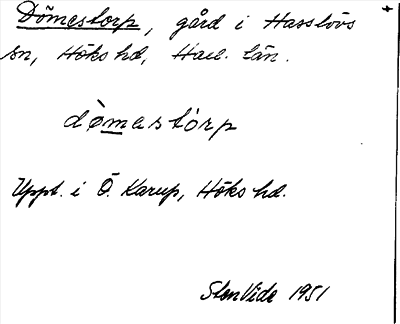 Dömestorp, gård i Hasslövs
sn, Höks hd, Hall. län.
dö̀mestórp
Uppt. i Ö. Karup, Höks hd.
Sten Vide 1951